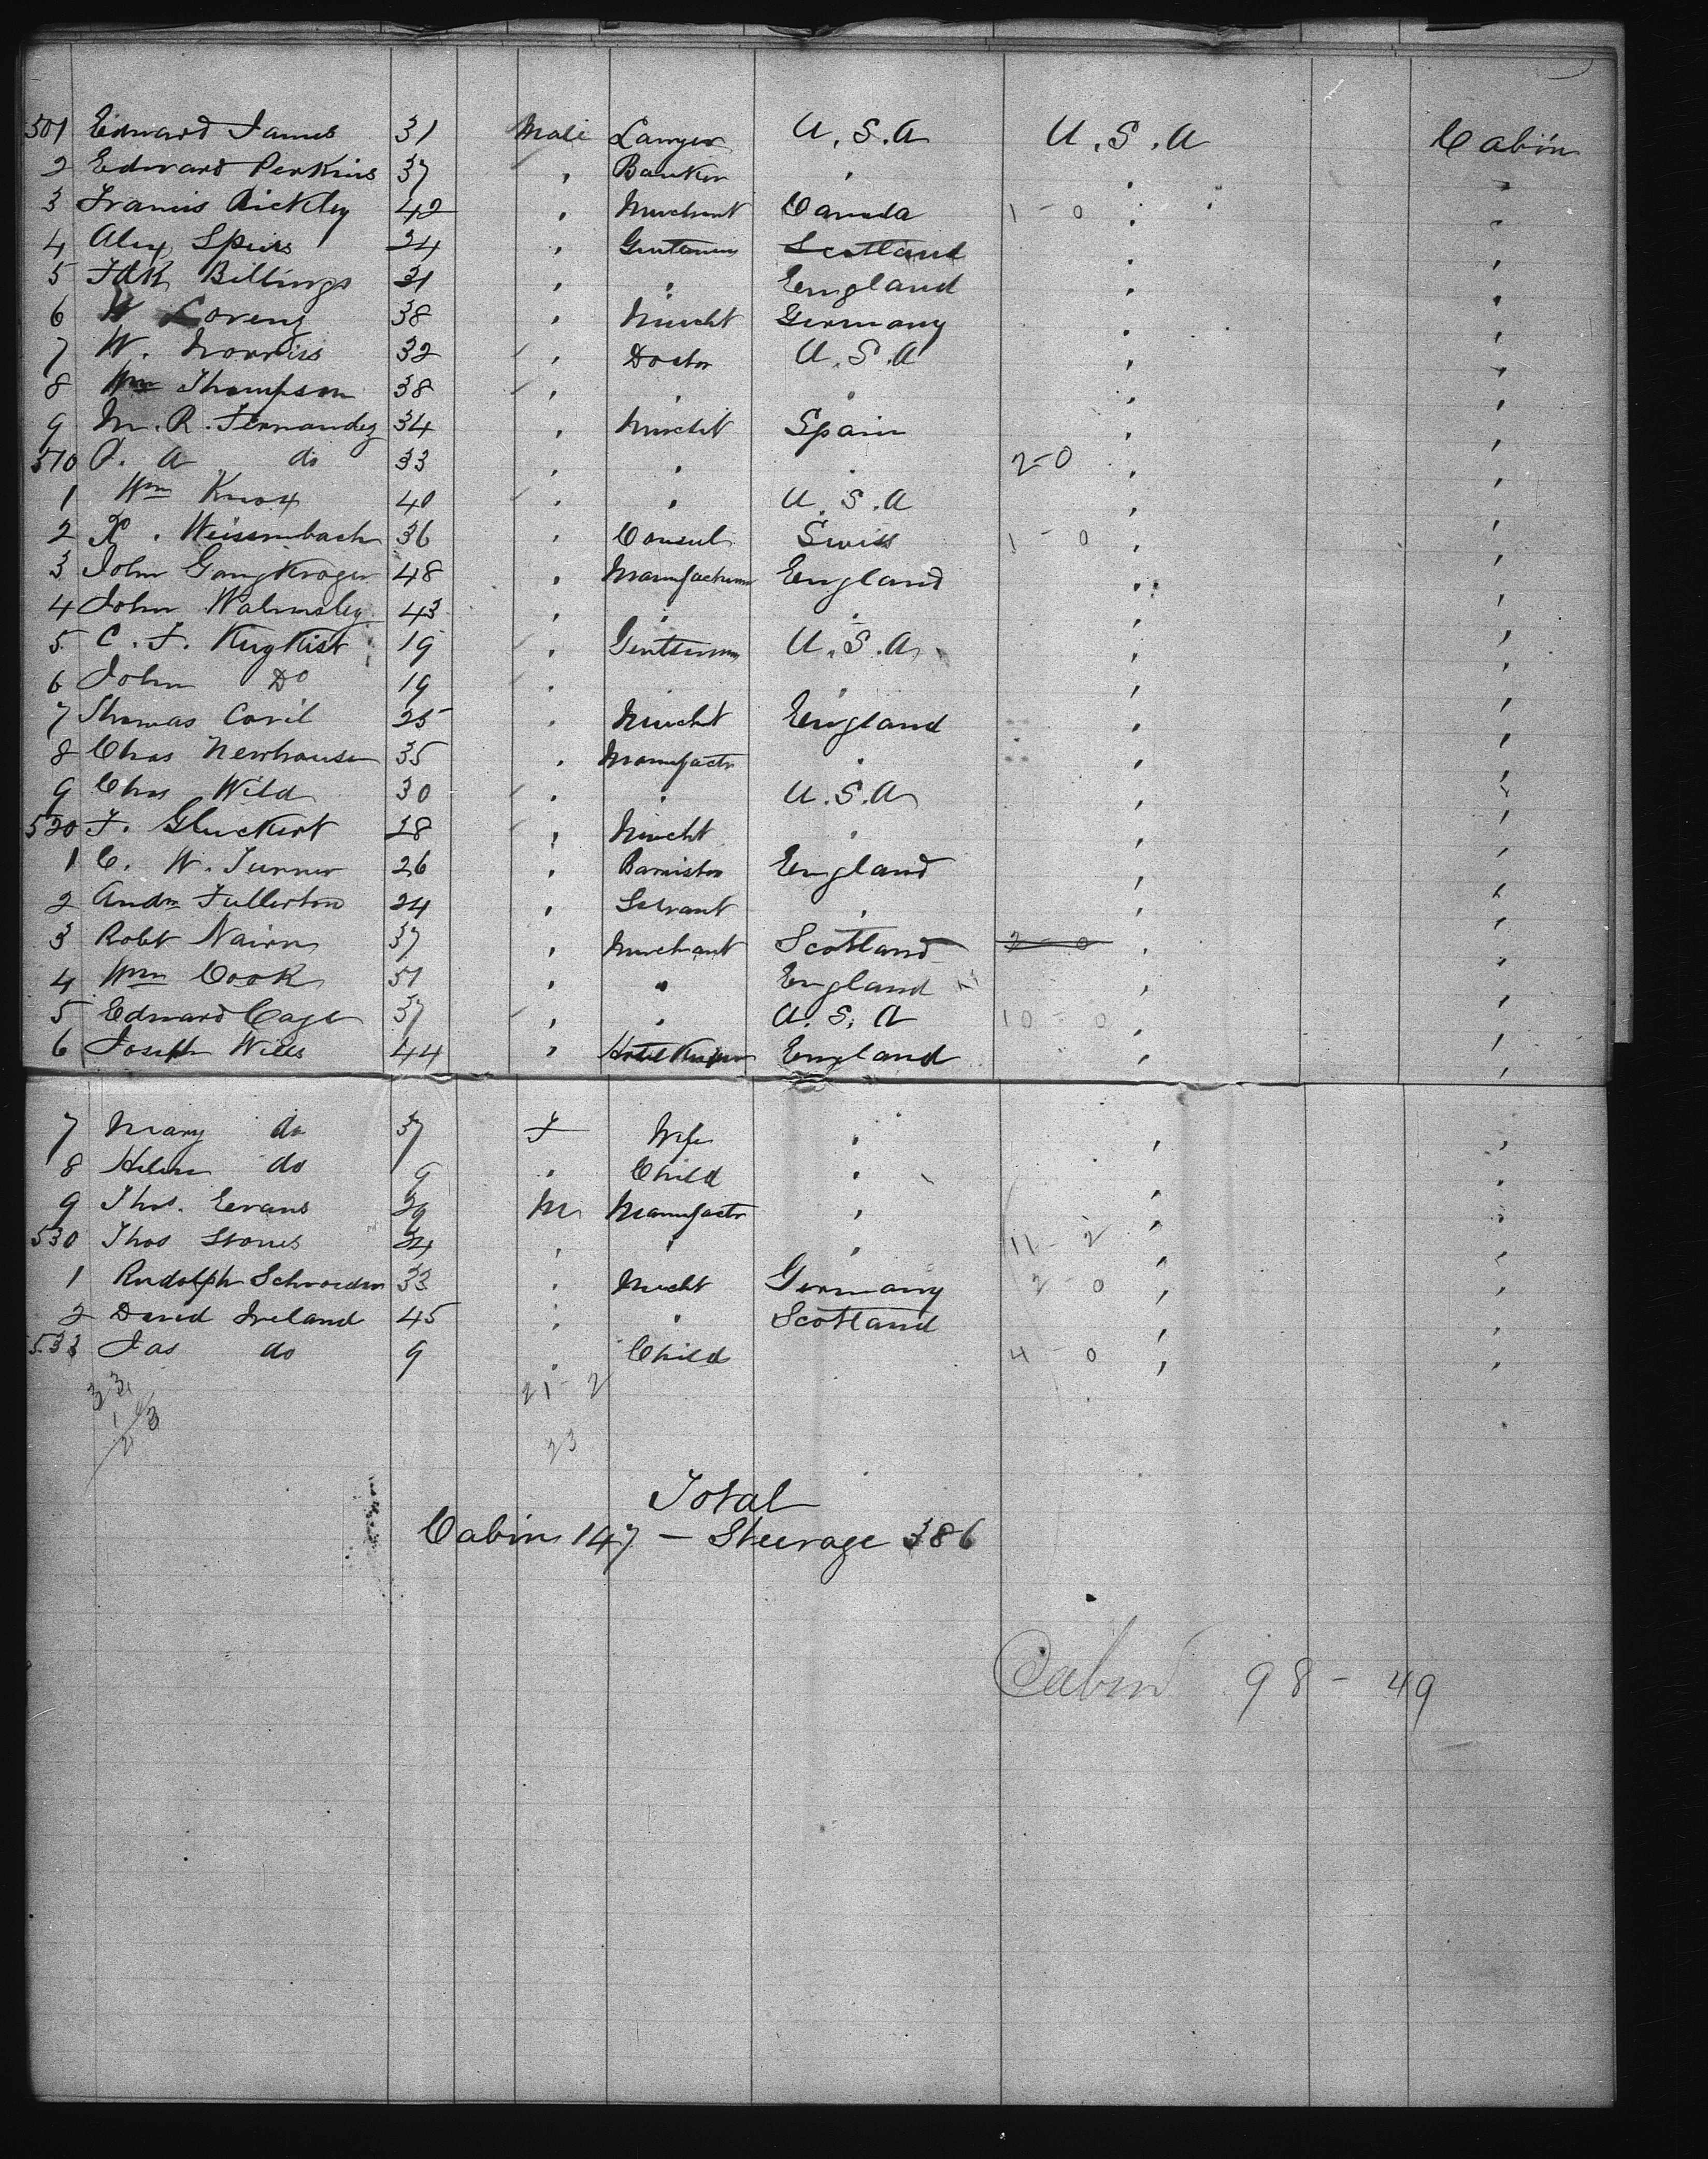 501 Edward James 31 Male Lawyer U.S.A U.S.A Cabin
2 Edward Perkins 37 " Banker " " "
3 Francis Rickley 42 " Merchant Canada 1-0 " "
4 Alex Spiers 24 " Gentleman Scotland " "
5 Fdk Billings 31 " " England " "
6 W Lorenz 38 " Mercht Germany " "
7 W. Norriss 32 " Doctor U.S.A " "
8 Wm Thompson 38 " " " " "
9 M. R. Fernandez 34 " Mercht Spain " "
510 P. A do 33 " " " 2-0 " "
1 Wm Knox 40 " " U.S.A " "
2 R. Weissenbach 36 " Consul Swiss 1-0 " "
3 John 48 " Manufacturer England " "
4 John Walmsley 43 " " " " "
5 C. F. 19 " Gentleman U.S.A " "
6 John Do 19 " " " " "
7 Thomas Coril 25 " Mercht England " "
8 Chas Newhouse 35 " Manufactr " " "
9 Chas Wild 30 " " U.S.A " "
520 F. Gluckert 28 " Mercht " " "
1 C. W. Turner 26 " Barrister England " "
2 Andw Fullerton 24 " Servant " " "
3 Robt Nairn 37 " Merchant Scotland 2-0 " "
4 Wm Cook 51 " " England " "
5 Edward Cage 37 " " U.S.A 10-0 " "
6 Joseph Wills 44 " Hotel Keeper England " "
7 Mary do 37 F Wife " " "
8 Helen do 9 " Child " " "
9 Thos. Evans 29 M Manufactr " " "
530 Thos Stones 34 " " " 11-2 " "
1 Rudolph Schroeder 33 " Mercht Germany 2-0 " "
2 David Ireland 45 " " Scotland " "
533 Jas do 9 " Child 4-0 " "
33 21-2
23
Total
Cabin 147 — Steerage 386
Cabin 98-49